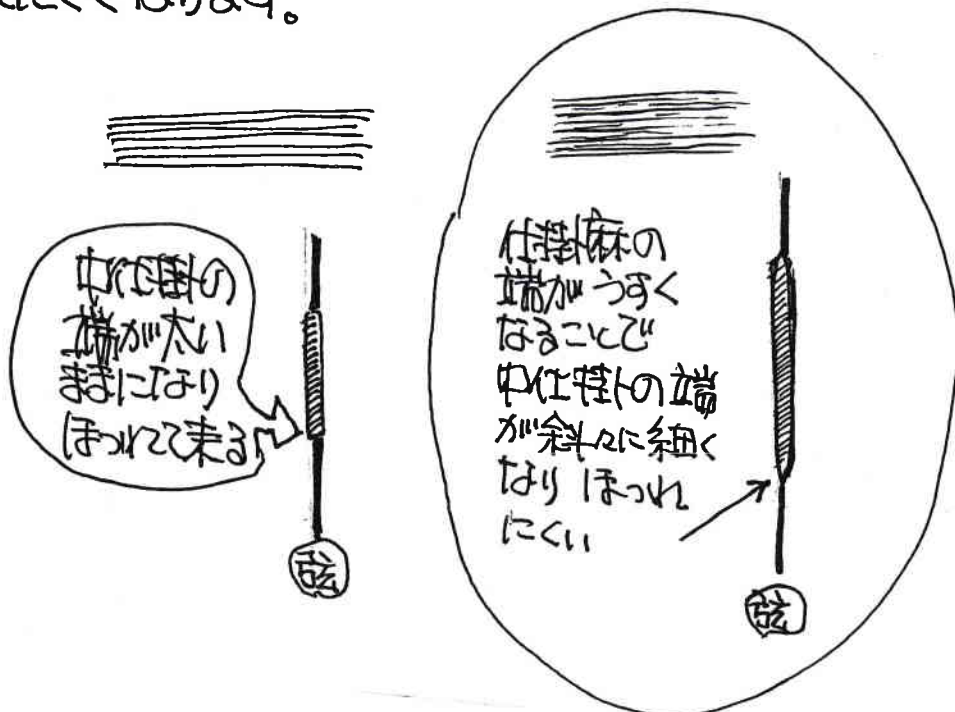 にくくなります。
中仕掛の
端が太い
ままになり
ほつれて来る
弦
仕掛麻の
端がうすく
なることで
中仕掛の端
が斜々に細く
なりほつれ
にくい
弦